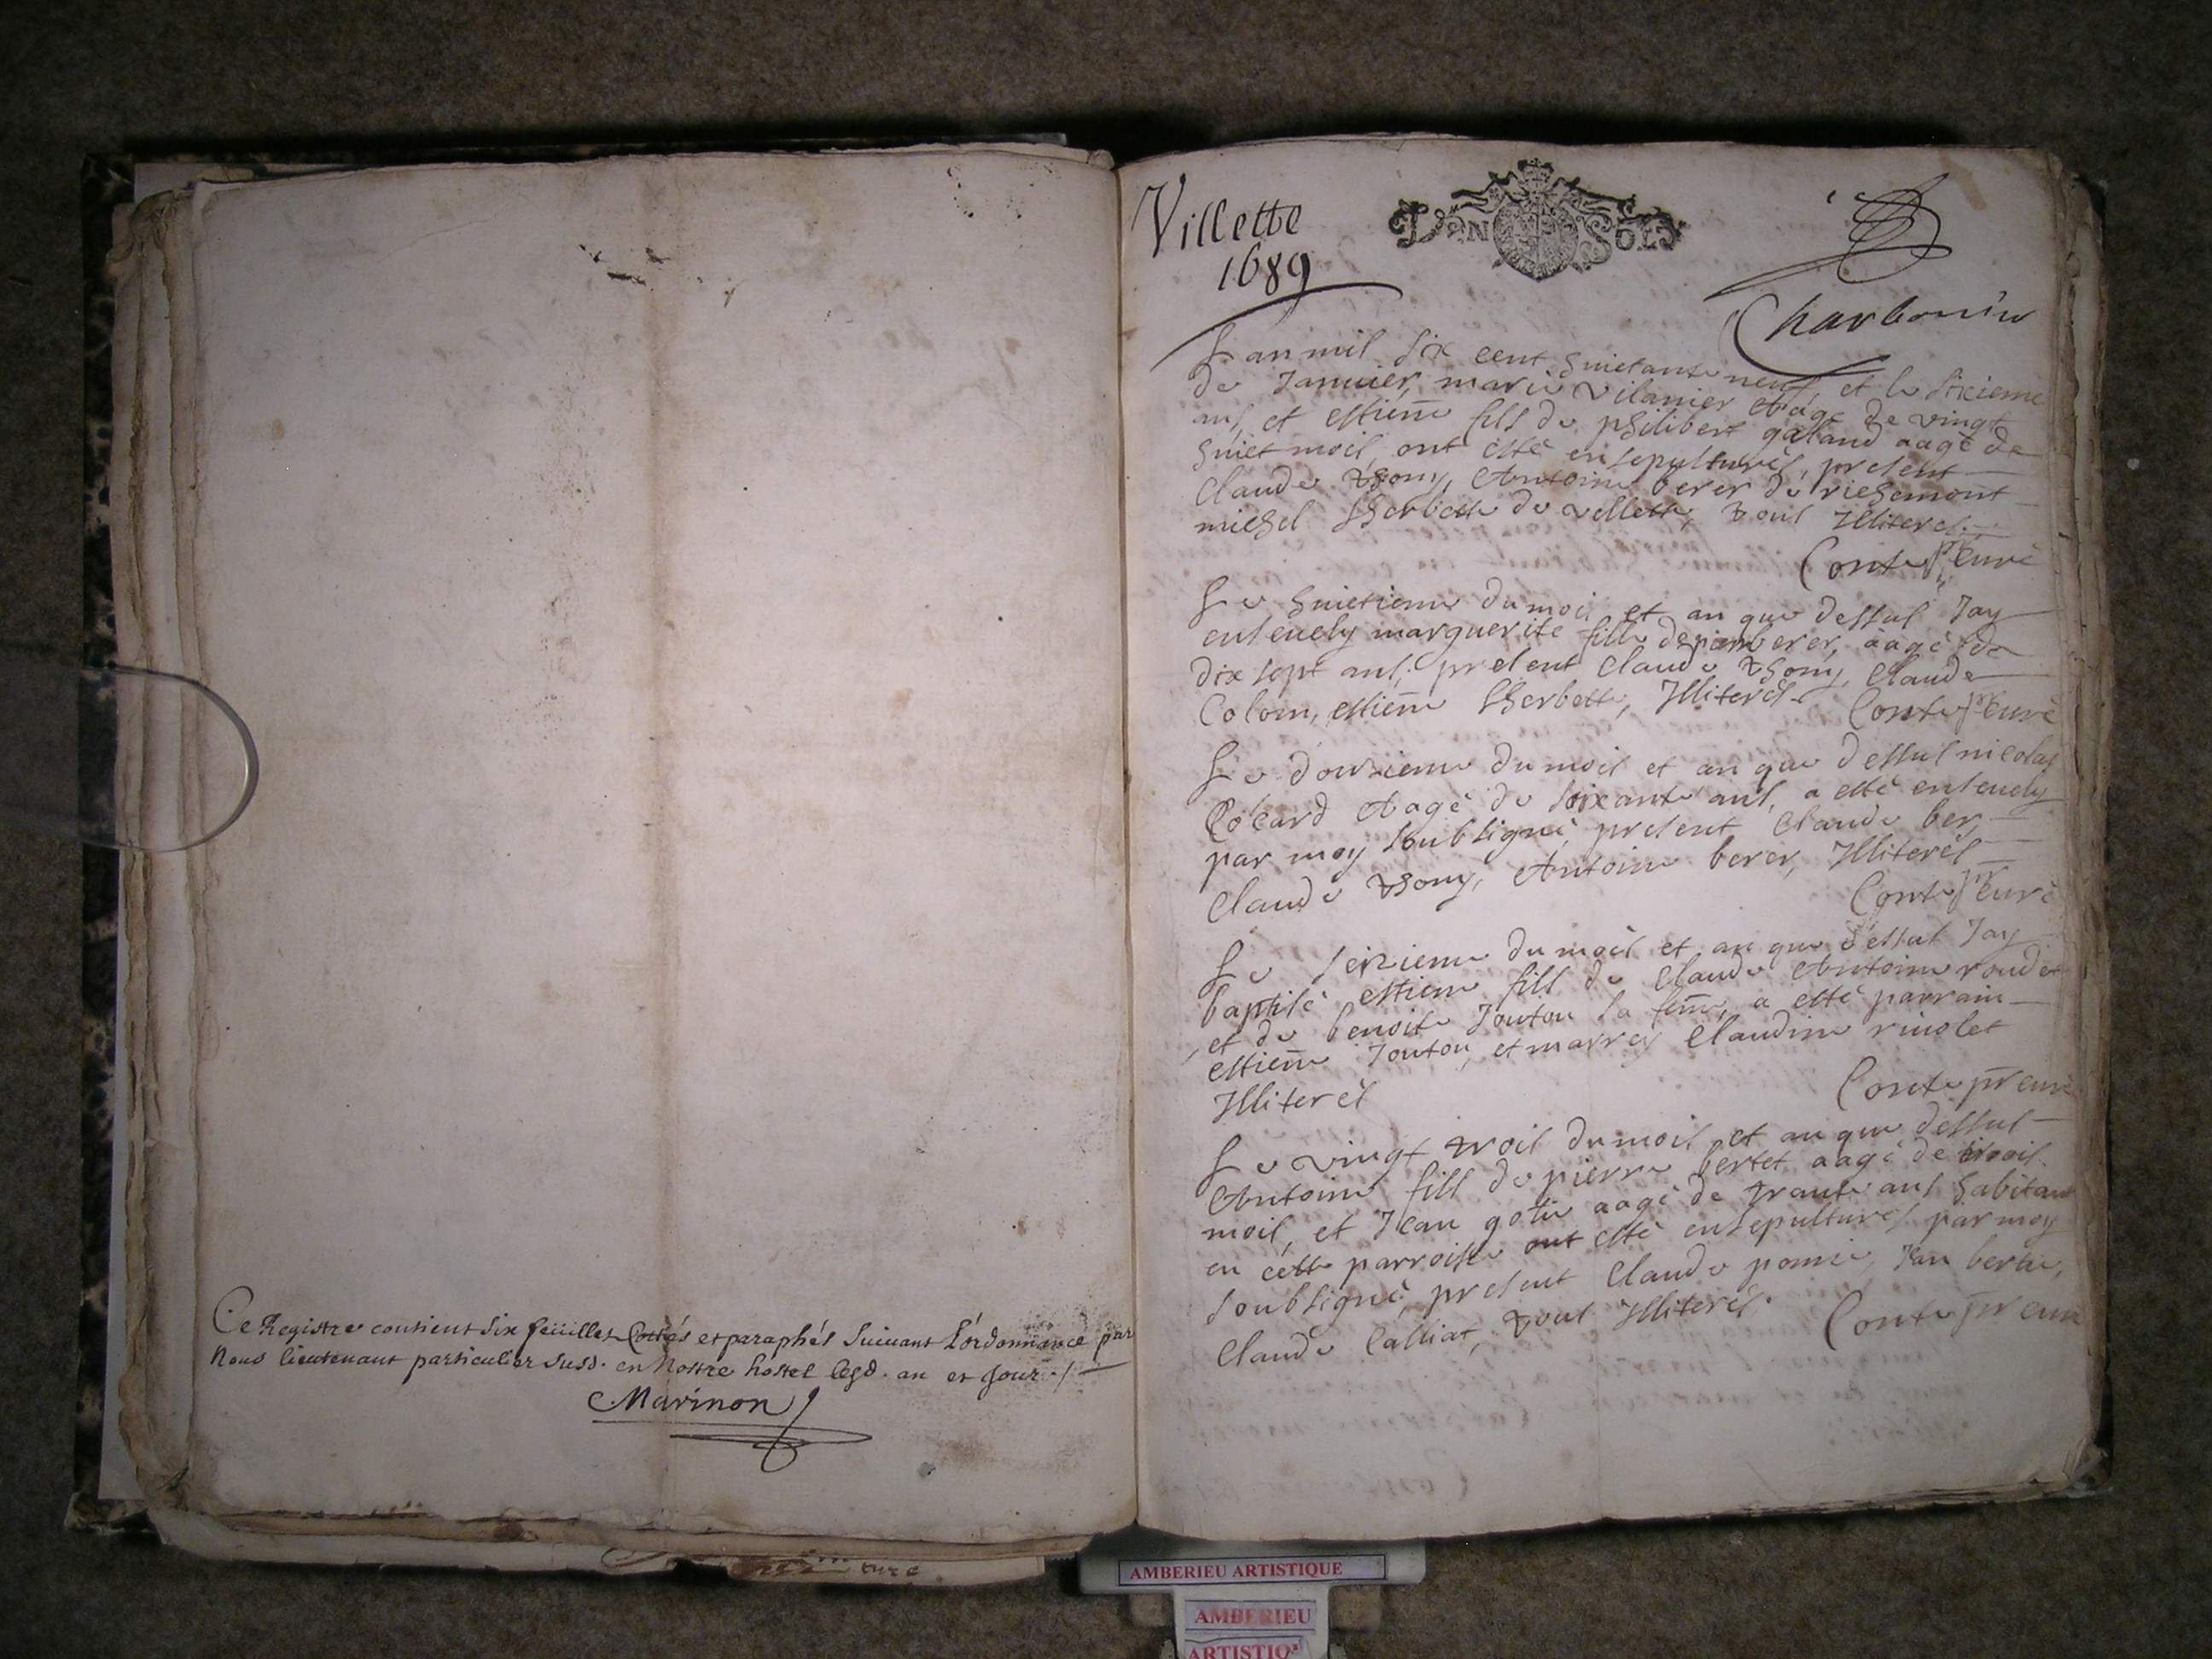 Ce Registre contient Six feüilles Cottés et paraphés Suiuant L'ordonnance par
Nous lieutenant particulier susd. en Nostre hostel lesd. an et Jour ./.
Marinon
Villette
1689
Charbonin
L an mil six cent huictante neuf, et le sixieme
de Januier, marie vilanier Aagé de vingt
ans, et estiene fils de philibert galand aagé de
huict mois, ont esté ensepulturés, present
Claude thony, Antoine berer de richemont
michel Lherbette de vellette, tous Illiterés.
Conte pr curé
Le huictieme du mois et an que dessus Jay
enseuely marguerite fille de pierre berer, aagé de
dix sept ans, present Claude thony, Claude
Colom, estiene Lherbette, Illiterés. Conte pr curé
Le douzieme du mois et an que dessus nicolas
Cocard Aagé de soixante ans, a esté enseuely
par moy soubsigné, present Claude ber,
Claude thony, Antoine berer, Illiterés
Conte pr curé
Le seizieme du mois et an que dessus Jay
baptisé estiene fils de Claude Antoine roudet
et de benoite Joutou sa feme, a esté parrain
estiene Joutou, et marrey Claudine riuolet
Illiterés
Conte pr curé
Le vingt trois du mois et an que dessus
Antoine fils de pierre bertet aagé de trois
mois, et Jean gotie aagé de trante ans habitant
en cette parroisse ont esté ensepulturés par moy
soubsigné, present Claude pomie, Jan bertie,
Claude Calliat, tous Illiterés. Conte pr curé
AMBERIEU ARTISTIQUE
AMBERIEU
ARTISTIQ